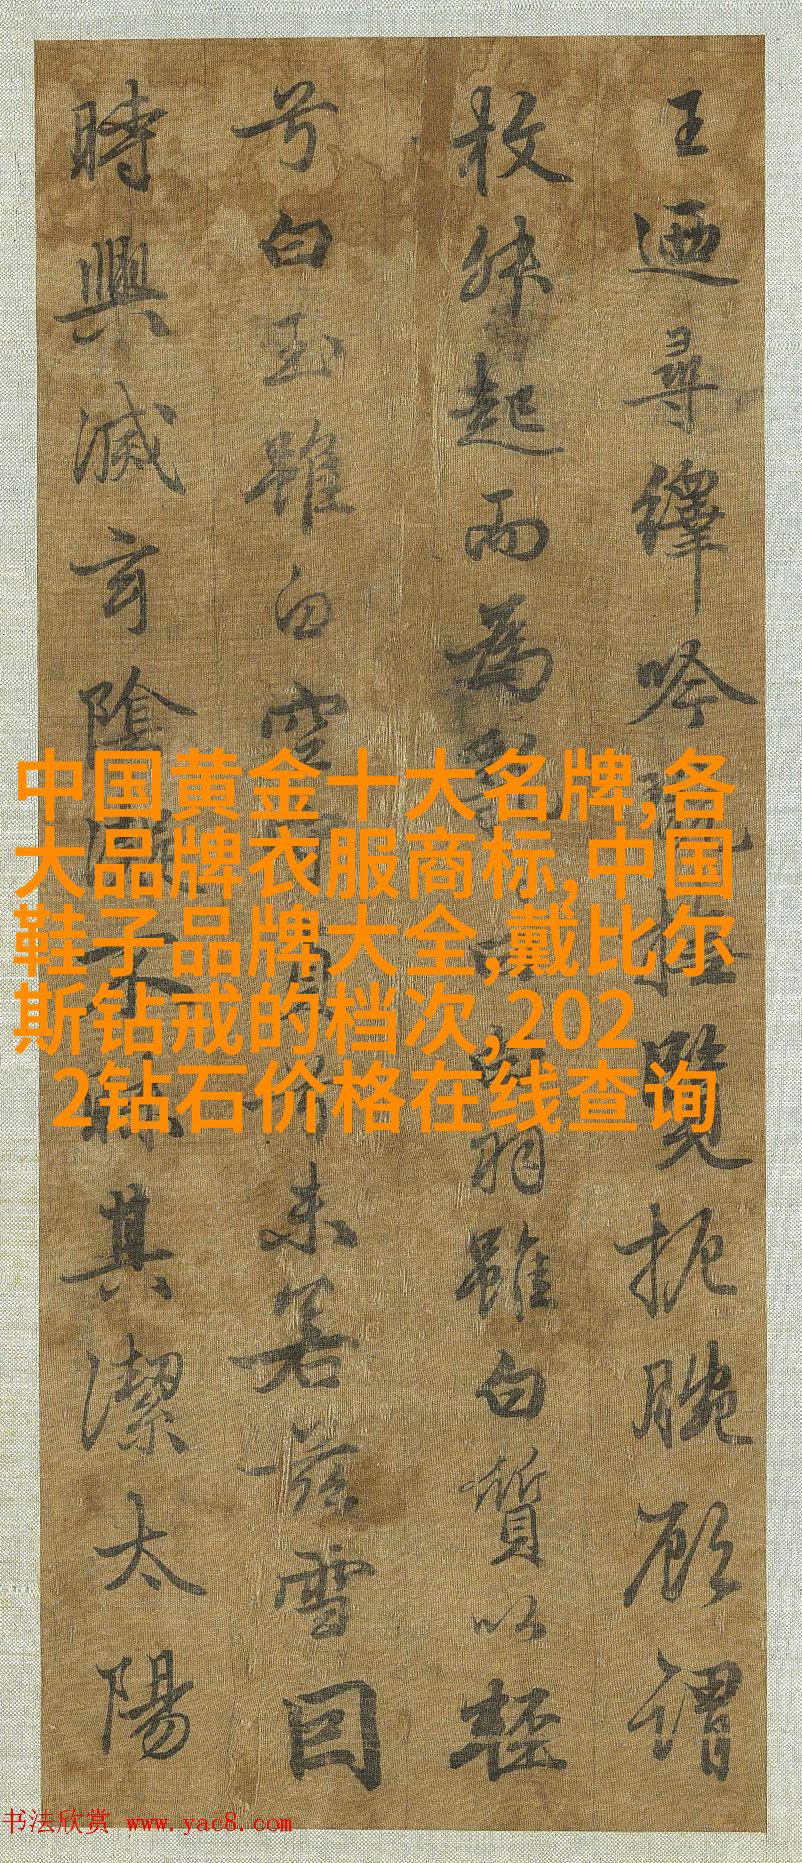 王迺尋繹吟翫覽扼腕顧謂
枚叔起而為亂羽雖白質以輕
兮白玉雖白空兮未若茲雪因
時興滅玄陰凝不昧其潔太陽
中国黄金十大名牌,各
大品牌衣服商标,中国
鞋子品牌大全,戴比尔
斯钻戒的档次,202
2钻石价格在线查询
书法欣赏 www.yac8.com